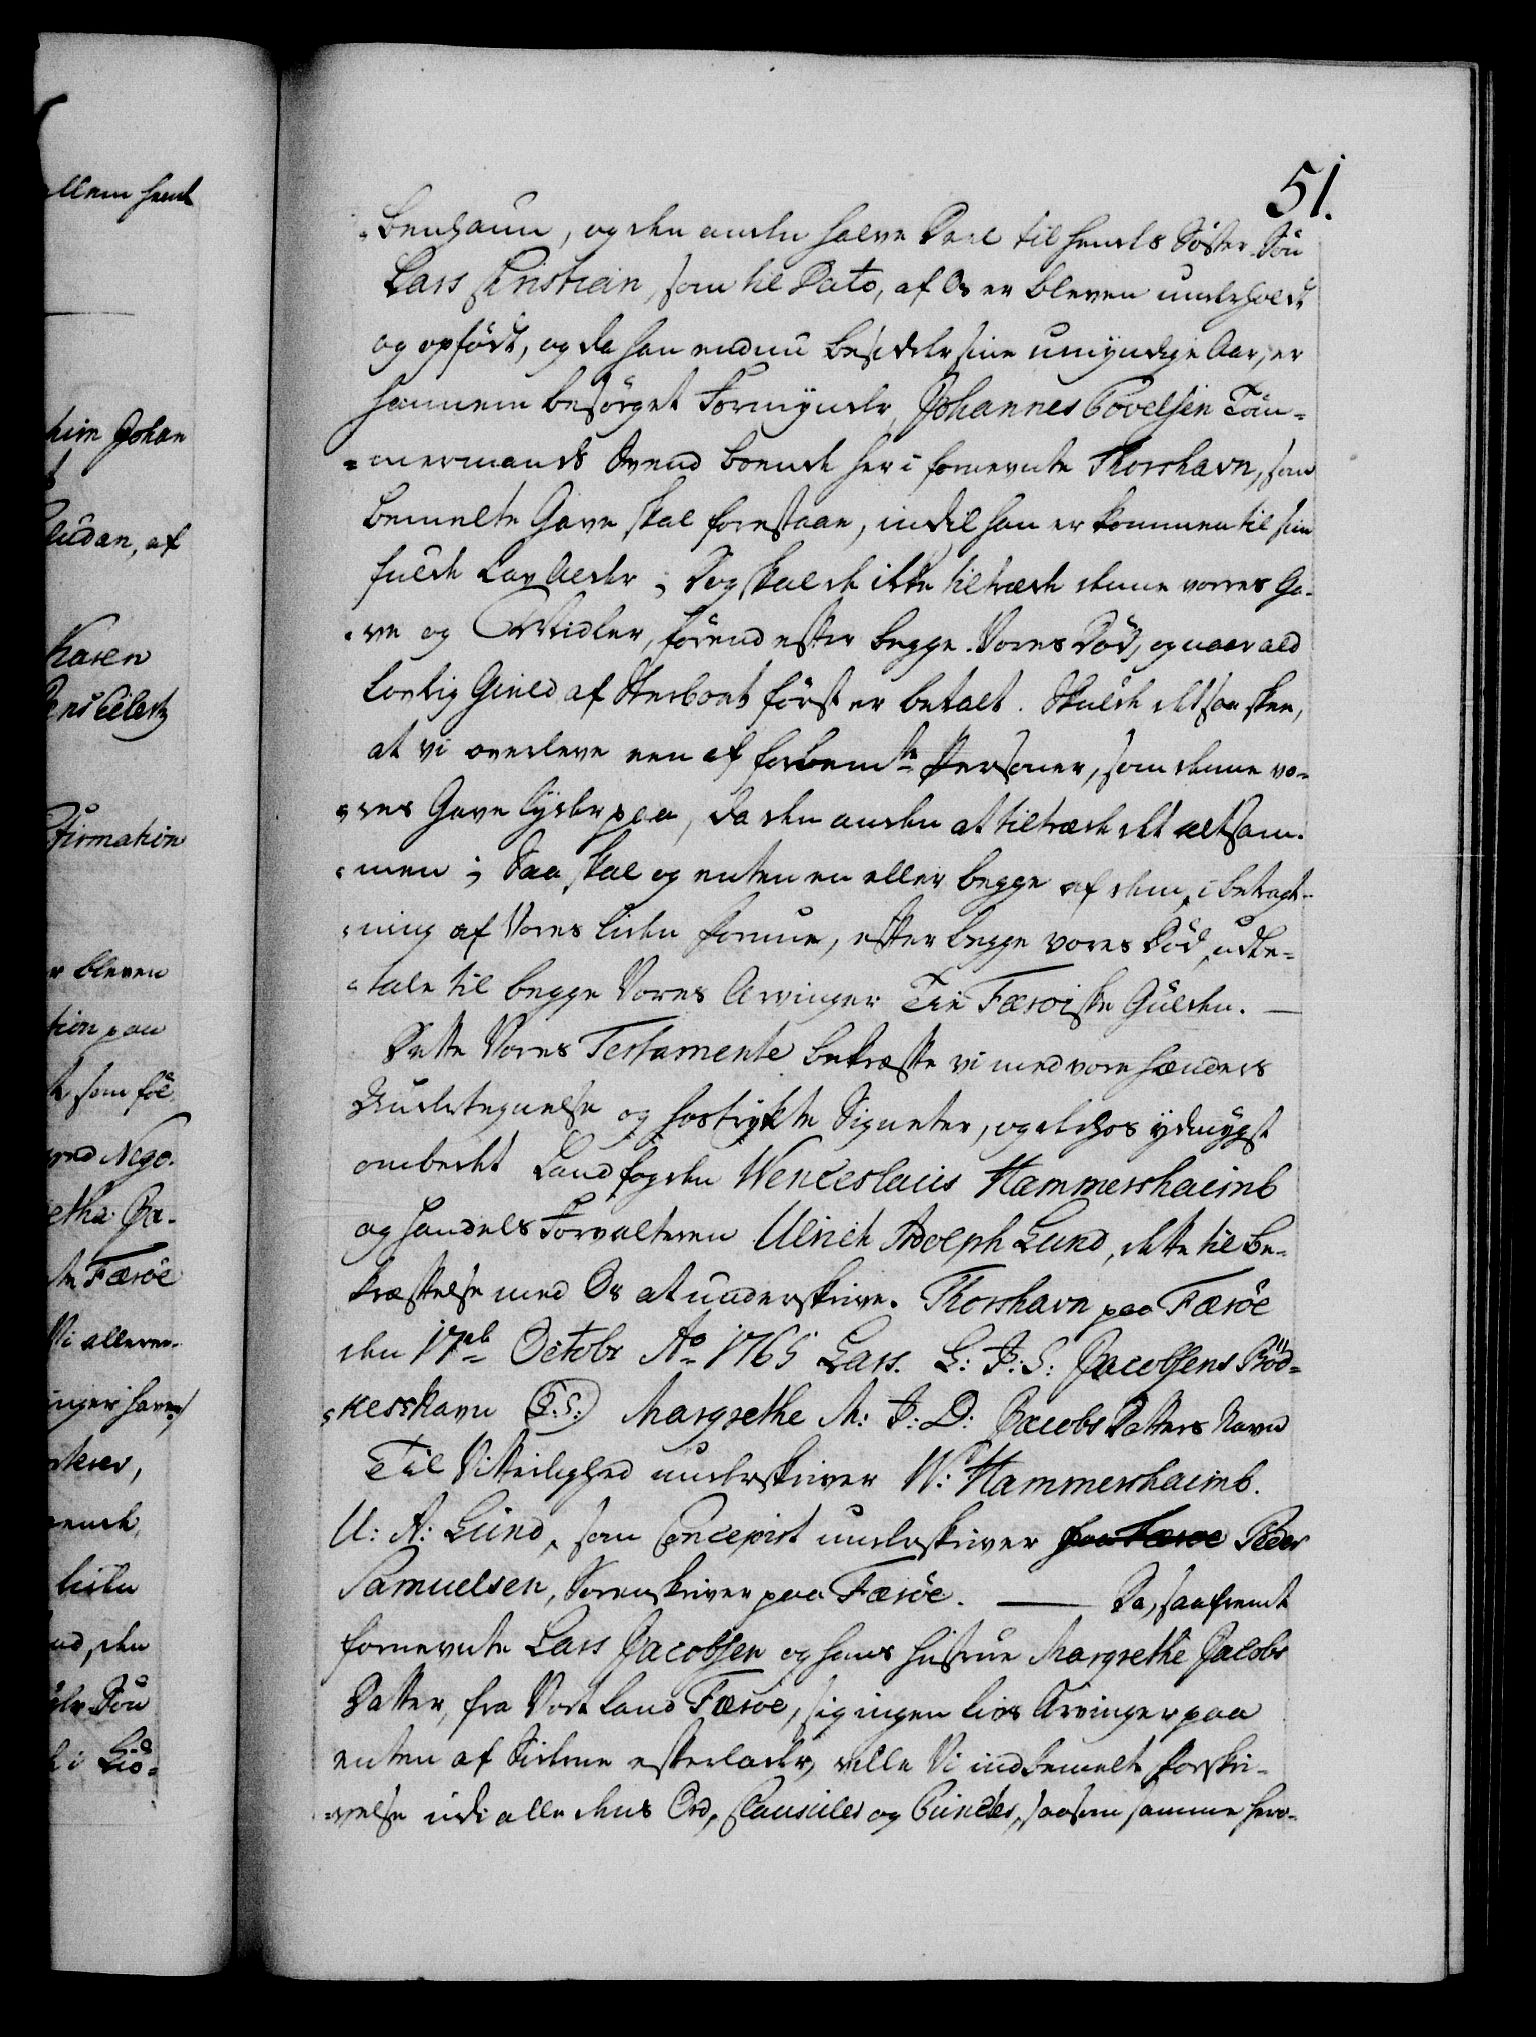 51.
benhaun, og den anden halve Deel til hendes Söster Sön
Lars Christian, som til Dato, af Os er bleven underholdt
og opfödt, og da han endnu besidder sine umyndige Aar, er
hannem besörget Formynder, Johannes Povelsen Töm-
-mermands Svend boende her i fornevnte Thorshavn, som
bemelte Gave skal forestaae, indtil han er kommen til sin
fulde Lav Alder; Dog skal de ikke tiltræde denne vorres Ga-
-ve og Midler, förend efter begge Vores Död, og naar ald
lovlig Gield af Sterboet först er betalt. Skulde det saa skee,
at vi overleve een af forbemte Personer, som denne vo-
-res Gave lyder paa, da den anden at tiltræde det altsam-
-men; Saa skal og enten en eller begge af dem, i betragt-
-ning af Vores liden formue, efter begge vores Död, udbe-
-tale til begge Vores Arvinger Tie Færöiske Gülden. —
Dette Vores Testamente bekræfte vi med vore hænders
Underteignelse og hostrykte Signeter, og derhos ydmygst
ombedet Landfogden Wenceslaus Hammershaimb
og Handels Forvalteren Ulrich Adolph Lund, dette til be-
kræftelse med Os at underskrive. Thorshavn paa Færöe
den 17de Octobr Ao 1765 Lars. L: J: S: Jacobsens Böd-
-kersnavn (L.S.) Margrethe M: J: D: Jacobs Datters Navn
Til Vitterlighed underskriver W: Hammershaimb.
U: A: Lund, som Concepist underskriver paa Færöe Peder
Samuelsen, Sorenskriver paa Færöe. — Da, saafremt
fornevnte Lars Jacobsen og hans hustrue Margrethe Jacobs
Datter, fra Vort Land Færöe, sig ingen livs Arvinger paa
enten af Siderne efterlader, ville Vi indbemelte forskri-
-velse udi alle dens Ord, Clausuler og Puncter, saasom samme her o-